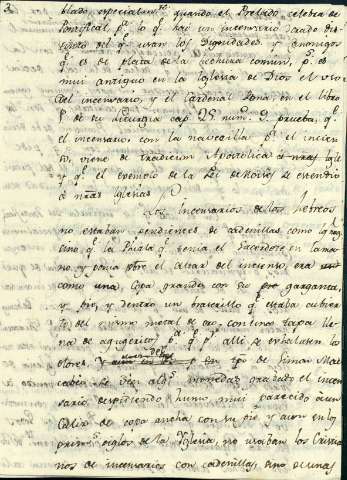 blado, especialmte. quando el Prelado celebra de
Pontifical pr. lo q. hai un incensario dorado dis-
tinto del q. usan los Dignidades y Canonigos
q. es de plata de la hechura comun, pr. es
mui antiguo en la Iglesia de Dios el uso
del incensario, y el Cardenal Bona, en el libro
1º de su Liturgia cap. 25 num. 9. prueba, q.
el incensario, con la navecilla pª. el incien-
so, viene de tradicion Apostolica
y q. el exemplo de la Lei de Moises se estendio
a nras Iglesias
Los incensarios de los hebreos
no estaban pendientes de cadenillas como
sino q. la Phiala q. tenia el Sacerdote en la ma-
no, y ponia sobre el altar del incienso, era
como una Copa grande con su garganta,
y pie, y dentro un braserillo q. estaba cubier-
to del mismo metal de oro, con una tapa lle-
na de agugeritos pª. q. pr. alli se exhalasen los
olores. y en tpo. de Simon Mac-
cabeo se ven algs. monedas grabado el incen-
sario despidiendo humo mui parecido a un
Caliz de copa ancha con su pie, y aun en los
primos. siglos de la Iglesia, no usaban los Cristia-
nos de incensarios con cadenillas, sino de unas